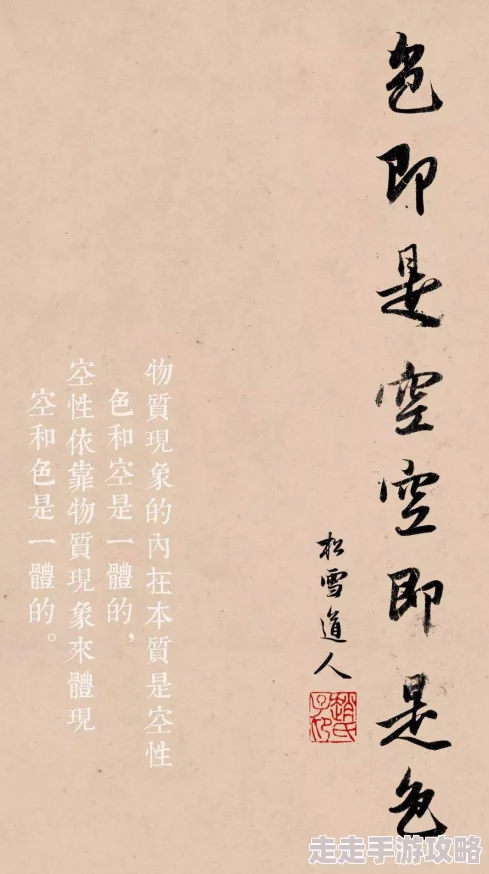 色即是空空即是色
松雪道人
趙氏子昂
物質現象的內在本質是空性
色和空是一體的，
空性依靠物質現象來體現
空和色是一體的。
走走手游攻略